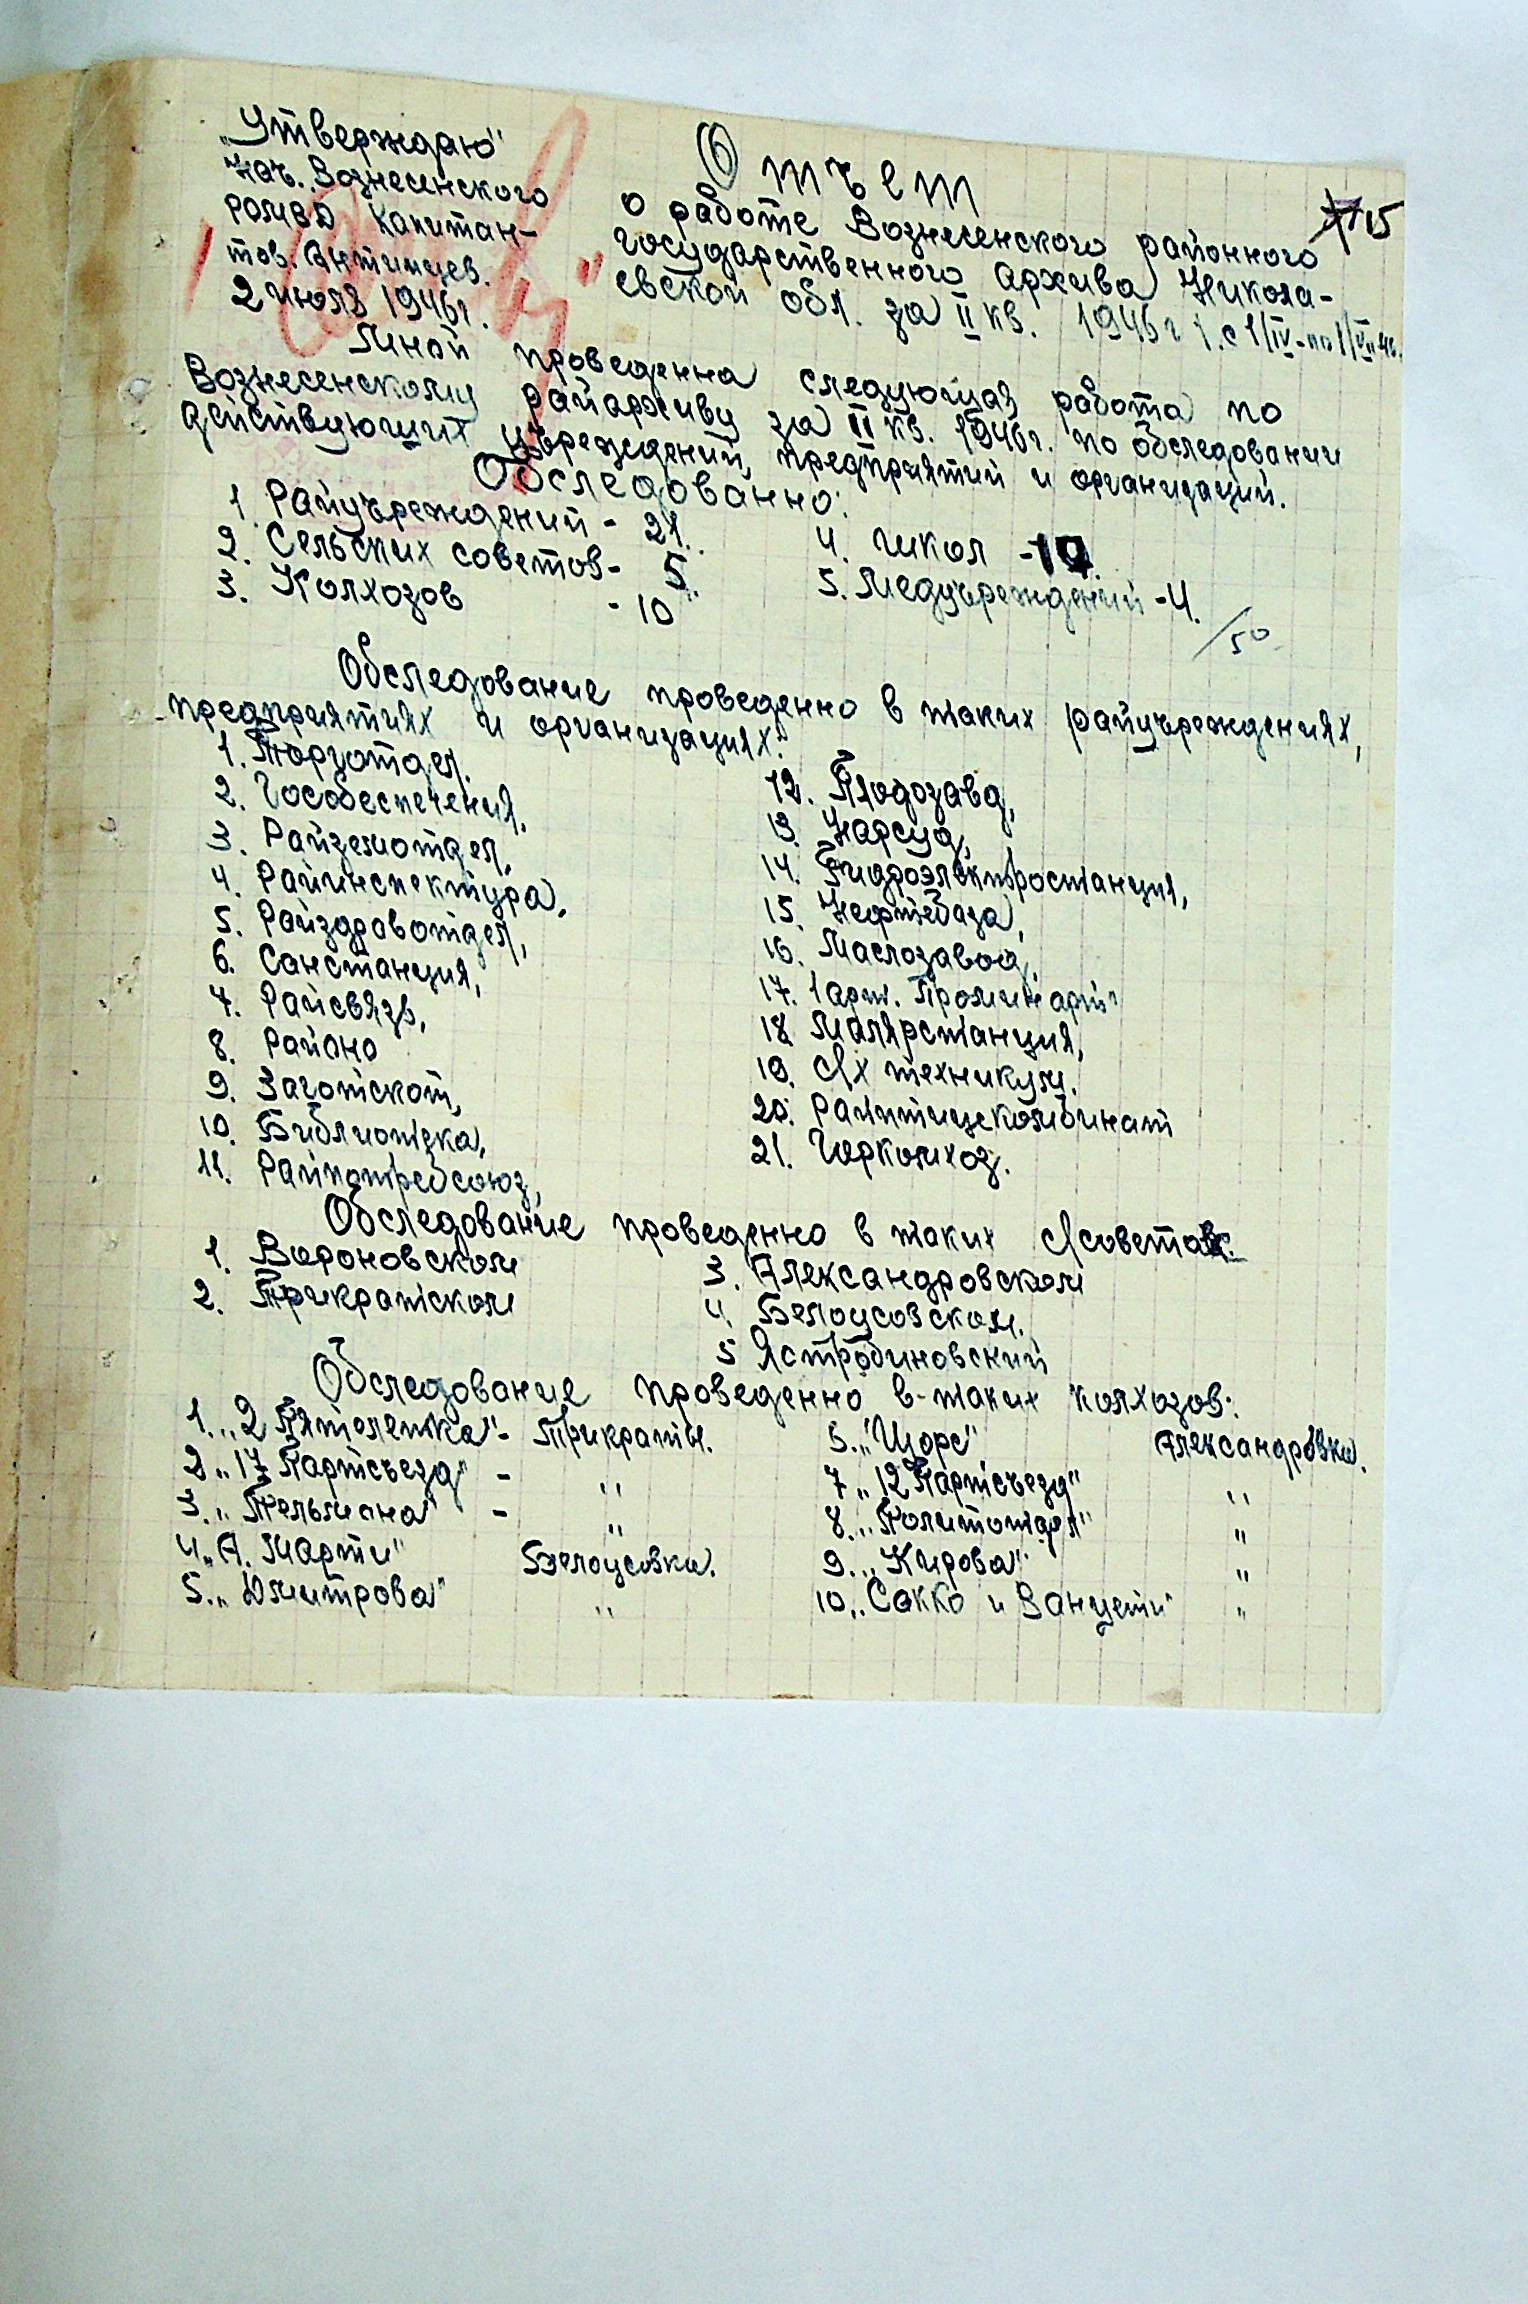 „Утверждаю"
Нач. Вознесенского
РОМВД Капитан-
тов. Антипцев.
2 июля 1946 г.
Отчет
15
о работе Вознесенского районного
государственного архива Никола-
евской обл. за II кв. 1946 г. с 1/IV-по 1/VII-46.
Мной проведенна следующая работа по
Вознесенскому райархиву за II кв. 1946г. по обследовании
действующих учреждений, предприятий и организаций.
Обследованно:
1. Райучреждений - 21.
2. Сельских советов - 5.
3. Колхозов - 10
4. школ - 10.
5. Медучреждений - 4.
/50
Обследование проведенно в таких райучреждениях,
предприятиях и организациях:
1. Торготдел.
2. Гособеспечения,
3. Райземотдел,
4. Райинспектура,
5. Райздравотдел,
6. Санстанция,
7. Райсвязь,
8. Районо
9. Заготскот,
10. Библиотека,
11. Райпотребсоюз,
12. Плодозавд,
13. Нарсуд,
14. Гидроэлектростанция,
15. Нефтебаза,
16. Маслозавод,
17. 1 арт.
18. Малярстанция,
19. С/х техникум.
20. Райптицекомбинат
21. Горкомхоз.
Обследование проведенно в таких с/советах:
1. Вороновском
2. Трикратском
3. Александровском
4. Белоусовском.
5 Ястробиновский
Обследование проведенно в-таких колхозов:
1. „2 Пятолетка" - Трикраты.
2 „17 Партсъезд" - "
3. „Тельмана" - "
4 „А. Марти" Белоусовка.
5. „Димитрова" "
5. „Щорс" Александровка.
7 „12 Партсъезд" "
8. „Политотдел" "
9. „Кирова" "
10. „Сакко и Ванцети" "